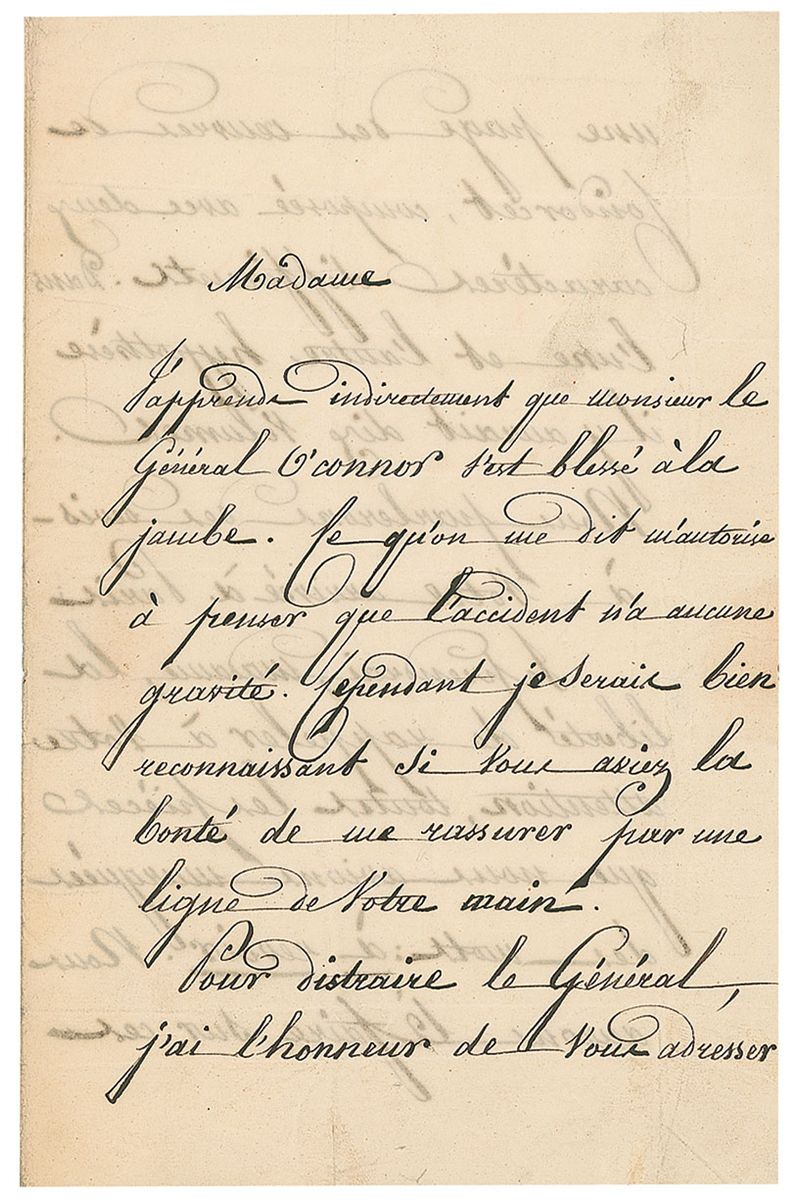 Madame
J'apprends indirectement que monsieur le
Général O'connor s'est blessé à la
jambe. Ce qu'on me dit m'autorise
à penser que l'accident n'a aucune
gravité. Cependant je serais bien
reconnaissant si vous aviez la
bonté de me rassurer par une
ligne de Votre main.
Pour distraire le Général,
j'ai l'honneur de Vous adresser